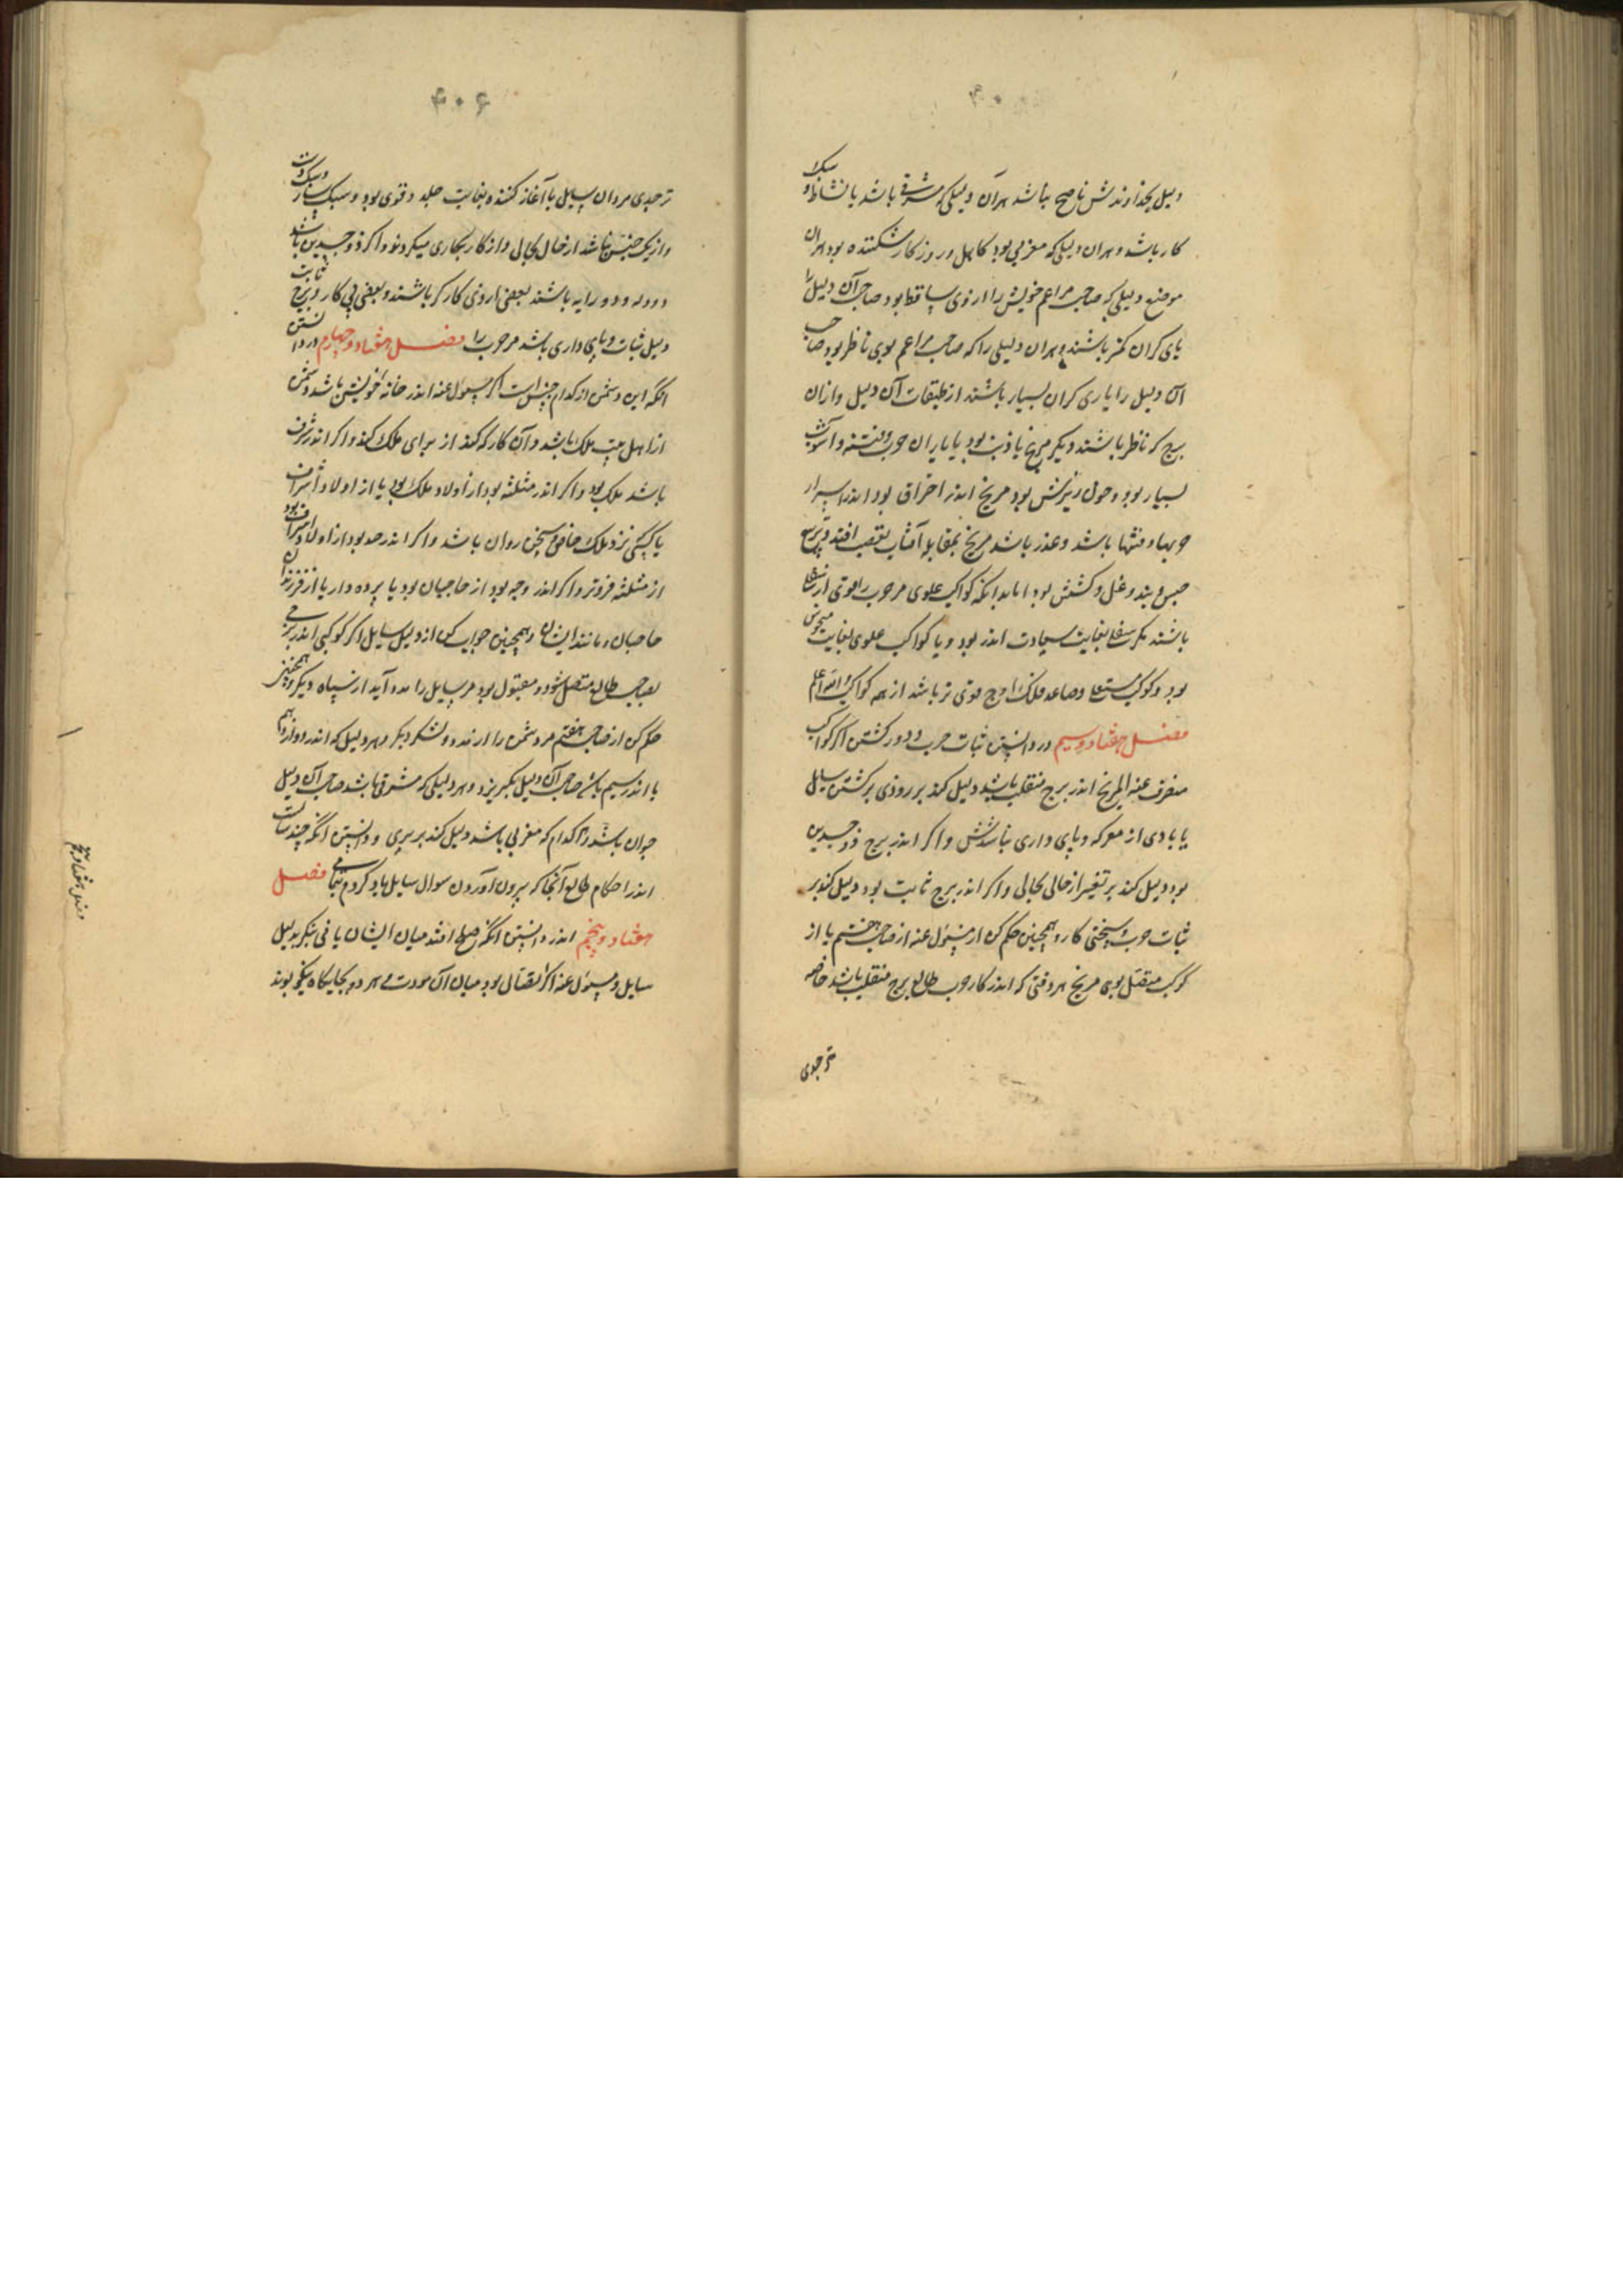 دلیل بخداوندش ناصح نباشد هران دلیلی که مشرقی باشد با نشاط و سبک
کار باشد و هران دلیلی که مغربی بود کاهل و روزکار شکننده بود و هران
موضع دلیلی که صاحب مزاعم خویش را از وی ساقط بود صاحب آن دلیل را
یاری کران کمتر باشند و هران دلیلی را که صاحب مزاعم بوی ناظر بود صاحب
آن دلیل را یاری کران بسیار باشند از طبقات آن دلیل و ازان
برج که ناظر باشند دیکر مریخ یا ذنب بود با یاران حرب و فتنه و آشوب
بسیار بود و خون ریزش بود مریخ اندر احتراق بود اندر اسرار
و فتنها باشد و عذر باشد مریخ بمقابله آفتاب بغضب افتد و تربیع
حبس و بند و غل و کشتن بود اما بدانکه کواکب علوی مر حرب را قوی تر از سفلی
باشند مکر سفلی بغایت سعادت اندر بود و یا کواکب علوی بغایت منحوس
بود و کوکب مستعلی و صاعد فلک اوج قوی تر باشد از همه کواکب والله اعلم
فصل هفتاد و سیم در دانستن ثبات حرب و دور کشتن اکر کواکب
منصرف عنه المریخ اندر برج منقلب باشد دلیل کند بر زودی برکشتن سایل
از معرکه و پای داری نباشدش و اکر اندر برج ذو جسدین
بود دلیل کند بر تغیر از حالی بحالی و اکر اندر برج ثابت بود دلیل کند بر
ثبات حرب و سختی کار و همچنین حکم کن از مسئول عنه از صاحب هفتم یا از
کوکب متصل بوی مریخ هر وقتی که اندر کار حرب طالع برج منقلب باشد خاصه
تر جدی
۴۰۶
تر جدی مردان سایل با آغاز کنند و بغایت جلد و قوی بود و سبک سار و سبک دست
و از یک جنس نباشد از حال بحال و از کار بکاری میکردند و اکر ذو جسدین باشد
دو دله و دو رایه باشند بعضی کارکر باشند و بعضی بی کار و برج ثابت
دلیل ثبات و پای داری باشد مر حرب را فصل هفتاد و چهارم در دانستن
آنکه این دشمن از کدام جنس است اکر مسئول عنه اندر خانه خویش باشد دشمن
از اهل بیت ملک باشد و آن کار که کند از برای ملک کند و اکر اندر شرف
باشد ملک بود و اکر اندر مثلثه بود از اولاد ملک بود یا از اولاد اشراف
یا کسی نزد ملک سخن روان باشد و اکر اندر حد بود از اولاد اشراف بود
از مثلثه فروتر و اکر اندر وجه بود از حاجبان بود یا پرده دار یا از فرزندان
حاجبان و مانند ایشان و همچنین جواب کن از دلیل سایل اکر کوکبی اندر برجی
بصاحب طالع متصل شود و مقبول بود مر سایل را مدد آید از سپاه دیکر و همچنین
حکم کن از صاحب هفتم مر دشمن را از مدد و لشکر دیکر و هر دلیل که اندر دوازدهم
یا اندر سیم باشد صاحب آن دلیل بکریزد و هر دلیلی که مشرقی باشد صاحب آن دلیل
جوان باشد و هر کدام که مغربی باشد دلیل کند بر پیری و دانستن آنکه چند سالست
اندر احکام طالع آنجا که بیرون آوردن سوال سایل یاد کردم بتمامی فصل
هفتاد و پنجم اندر دانستن آنکه صلح افتد میان ایشان یا نی بنکر بدلیل
سایل و مسئول عنه اکر اتصال بود میان آن مودت و هر دو بجایکاه نیکو بوند